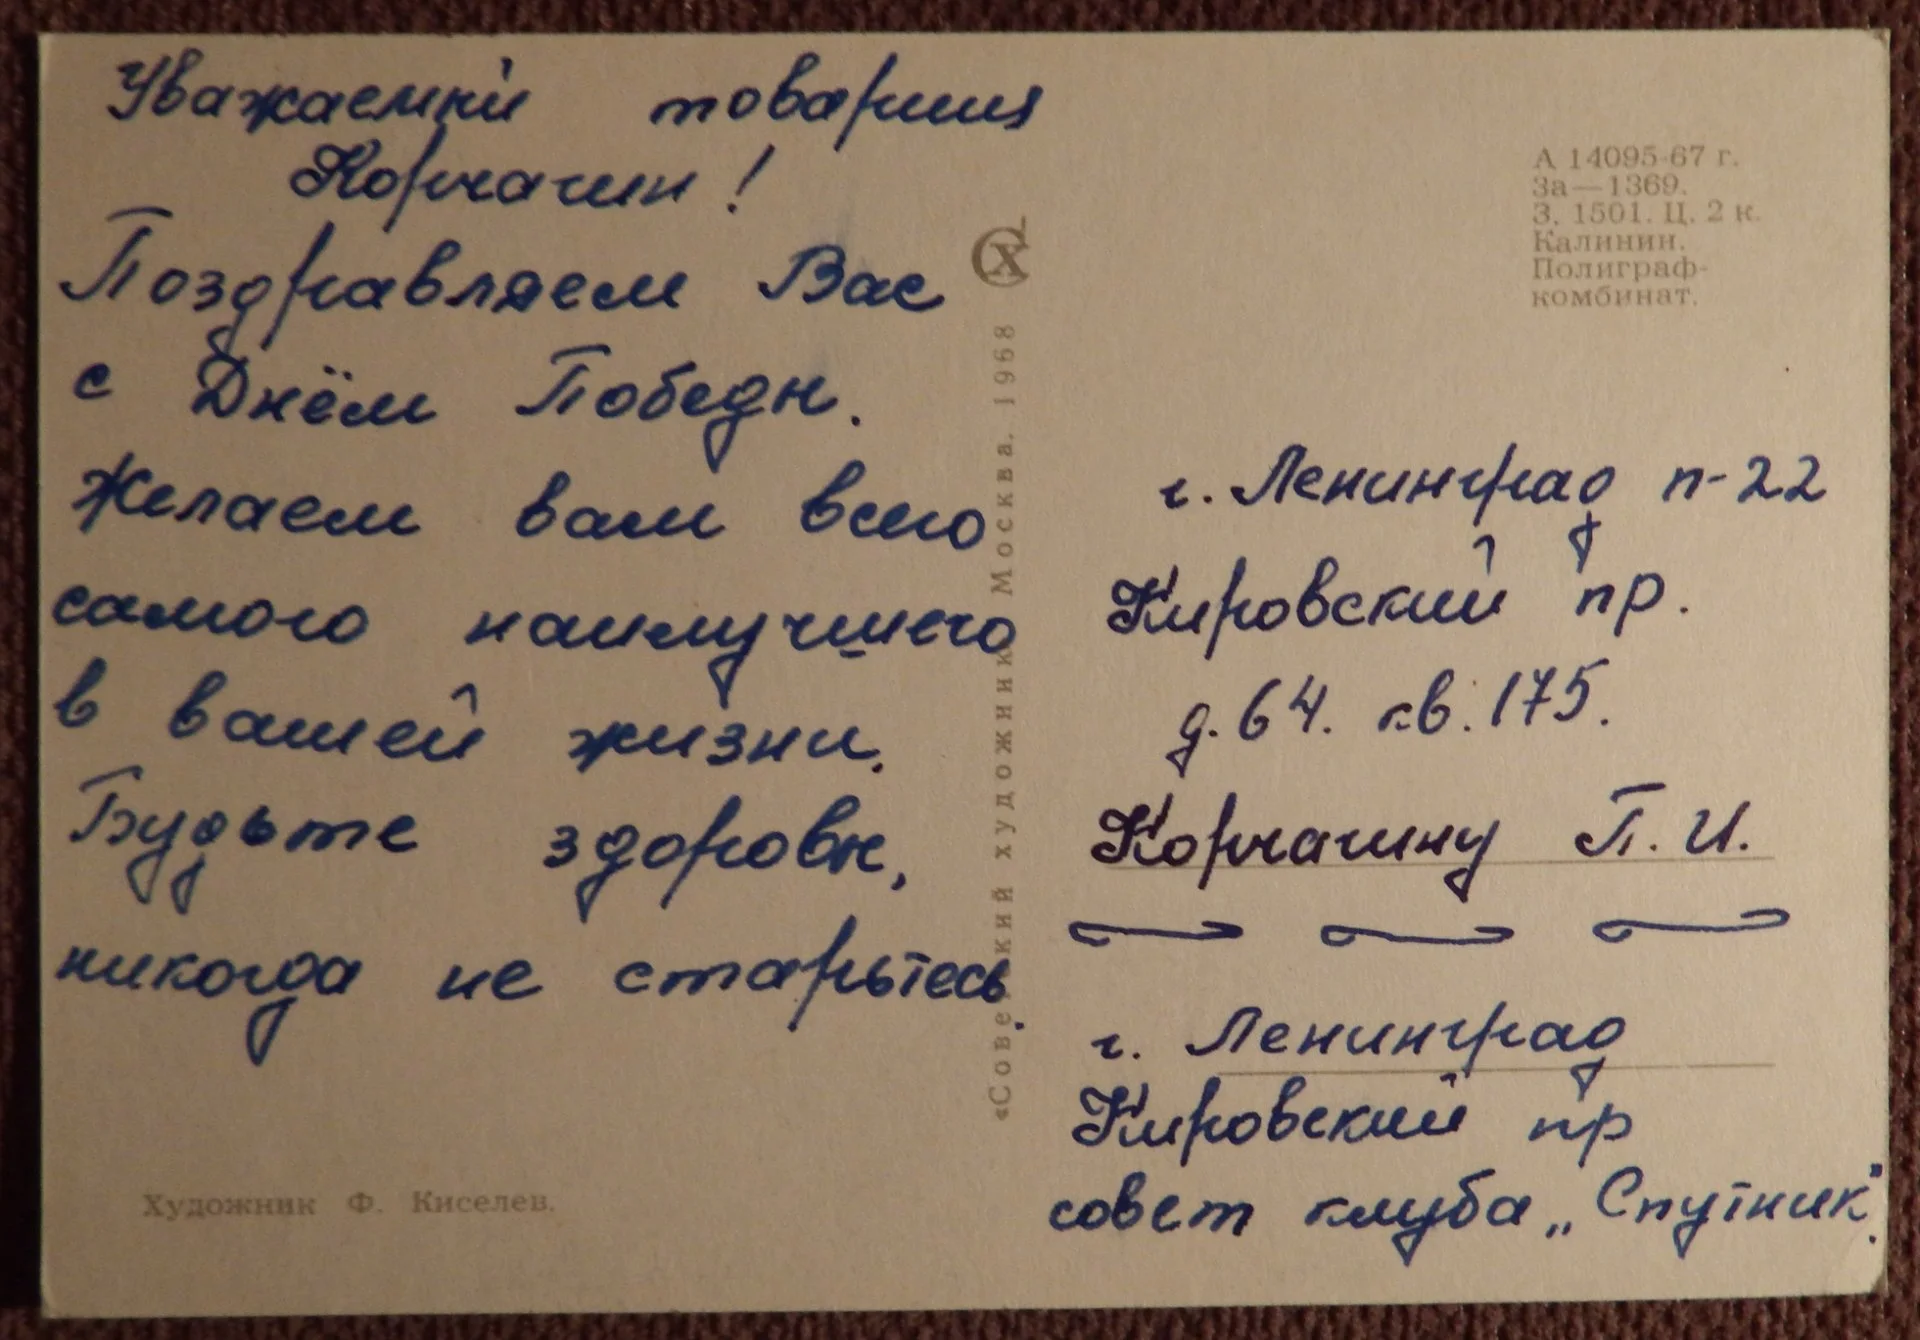 Уважаемый товарищ
Корчагин!
Поздравляем Вас
с Днём Победы.
Желаем вам всего
самого наилучшего
в вашей жизни.
Будьте здоровы,
никогда не старьтесь.
Художник Ф. Киселев.
«Советский художник» Москва. 1968
СХ
А 14095-67 г.
За—1369.
З. 1501. Ц. 2 к.
Калинин.
Полиграф-
комбинат.
г. Ленинград п-22
Кировский пр.
д. 64. кв. 175.
Корчагину П. И.
г. Ленинград
Кировский пр
совет клуба „Спутник".